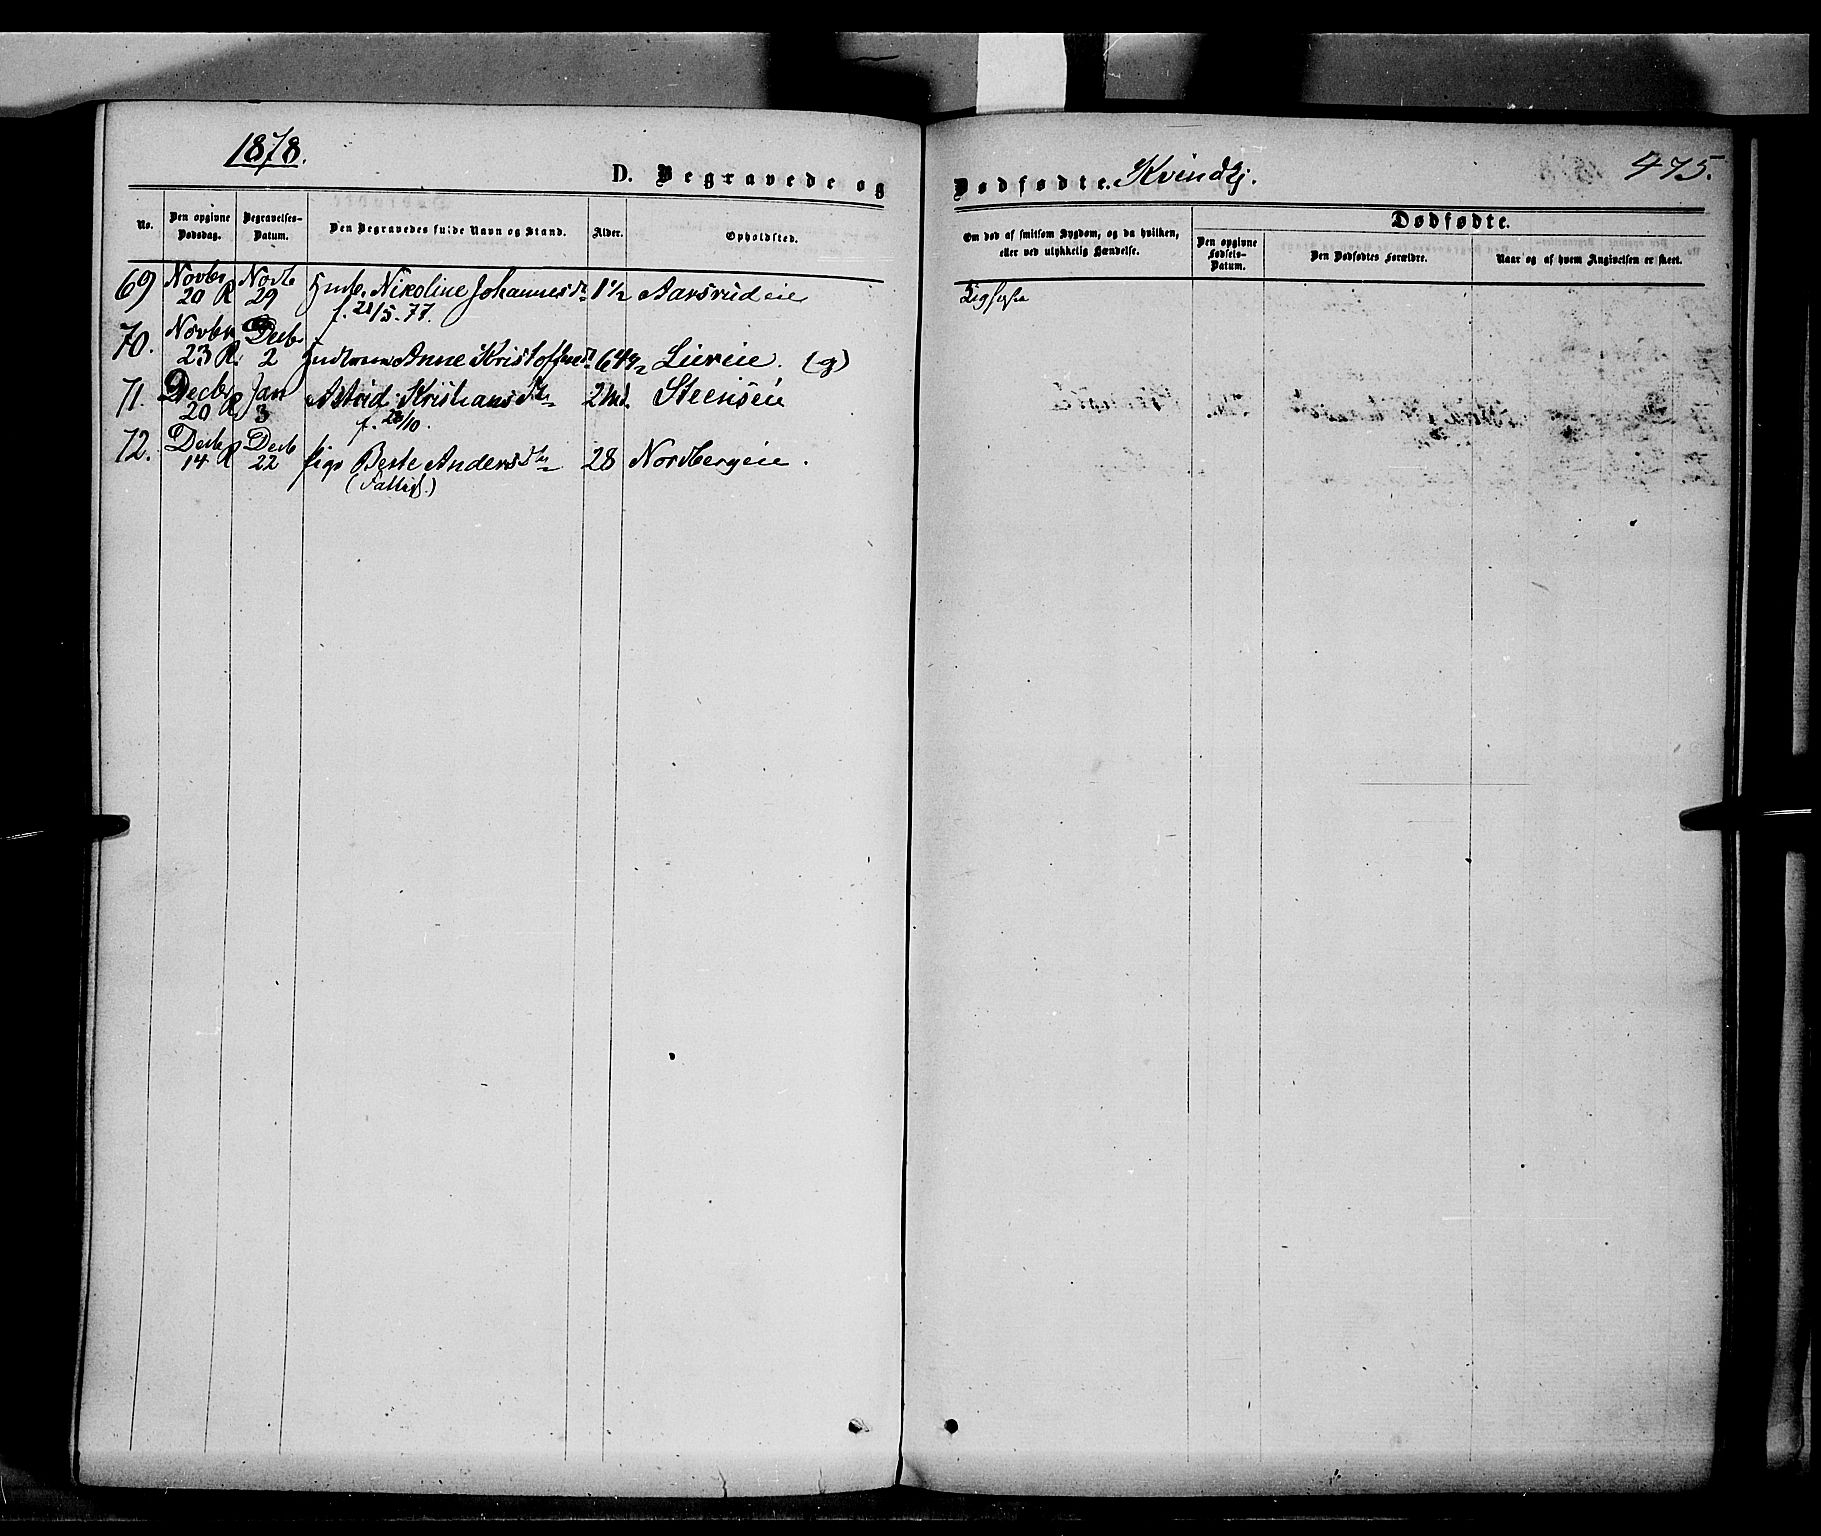 1878.
D. Begravede og
Dødfødte. Kvindkj.
475.
No.
Den opgivne Dødsdag.
Begravelses-Datum.
Den Begravedes fulde Navn og Stand.
Alder.
Opholdsted.
Om død af smitsom Sygdom, og da hvilken, eller ved ulykkelig Hændelse.
Dødfødte.
Den opgivne Fødsels-Datum.
Den Dødfødtes Forældre.
Naar og af hvem Angivelsen er skeet.
69 Novbr 20 R Novb 29 Nikoline Johannesd. 1 1/2 Aarsrudeie
f. 21/5.77.
70. Novbr 23 R Decb 2 Anne Kristoffersd. 64 1/2 Liereie. (g)
71. Decbr 20 R Jan 3 Astrid Kristiansdtr 2 Md. Steenseie
f. 20/10.
72. Decb 14 R Decb 22 Pige Berte Andersdtr 28 Nordbergeie.
(Fattigl.)